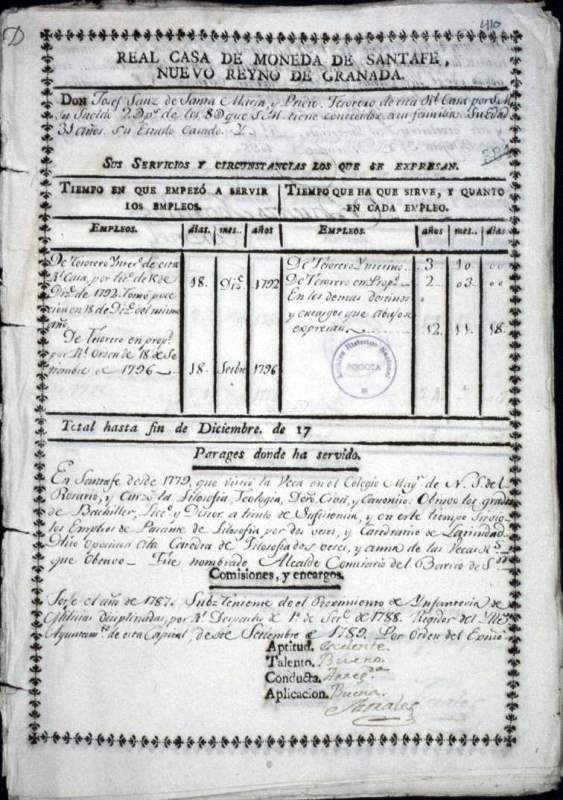 410
REAL CASA DE MONEDA DE SANTAFE,
NUEVO REYNO DE GRANADA.
DON Josef Sanz de Santa Maria, y Prieto Tesorero de esta Rl. Casa por S.M.
su Sueldo 2 Dps. de los 8 D que S.M. tiene concedido a su familia Su edad
3 años. su Estado Casado. Y
SUS SERVICIOS Y CIRCUNSTANCIAS LOS QUE SE EXPRESAN.
TIEMPO EN QUE EMPEZÓ A SERVIR LOS EMPLEOS.
TIEMPO QUE HA QUE SIRVE, Y QUANTO EN CADA EMPLEO.
EMPLEOS. dias. mes. años
EMPLEOS. años mes. dias.
De Tesorero Ynterº. de esta De Tesorero Ynterino 3 10 00
Rl. Casa, por 18 Dic. 1792 De Tesorero en Propd. 2 03 00
Dizre. de 1792. Tomó pose En los demas destinos
cion en 18 de Dizre. del mismo y encargos que abajo se
año. expresan 12 11 18
De Tesorero en propd.
por Rl. Orden de 18 de Se
tiembre de 1796 18 Settbre 1796
Archivo Historico Nacional
BOGOTA
Total hasta fin de Diciembre. de 17
Parages donde ha servido.
En Santafe desde 1779, que vistió la Veca en el Colegio Mayr. de N. S. del
Rosario, y Cursó la Filosofia, Teologia, Dro. Civil, y Canonico. Obtuvo los grados
de Bachiller, Licdo. y Doctor a titulo de Suficiencia, y en este tiempo sirvio
los Empleos de Pasante de Filosofia por dos veces, y Catedratico de Latinidad
Hizo oposicion a la Catedra de Filosofia dos veces, y a una de las Vecas
que obtuvo - Fue nombrado Alcalde Comisario del Barrio de
Comisiones, y encargos.
el año de 1787. Sub-Teniente de el Regimiento de Ynfanteria de
Milicias disciplinadas, por Rl. Despacho de 1º. de Serre. de 1788. Regidor del Ytte
Ayuntamto. de esta Capital, desde Settiembre de 1789. Por Orden del Exmo.
Aptitud. Exelente.
Talento. Bueno.
Conducta. Arregda.
Aplicacion. Buena.